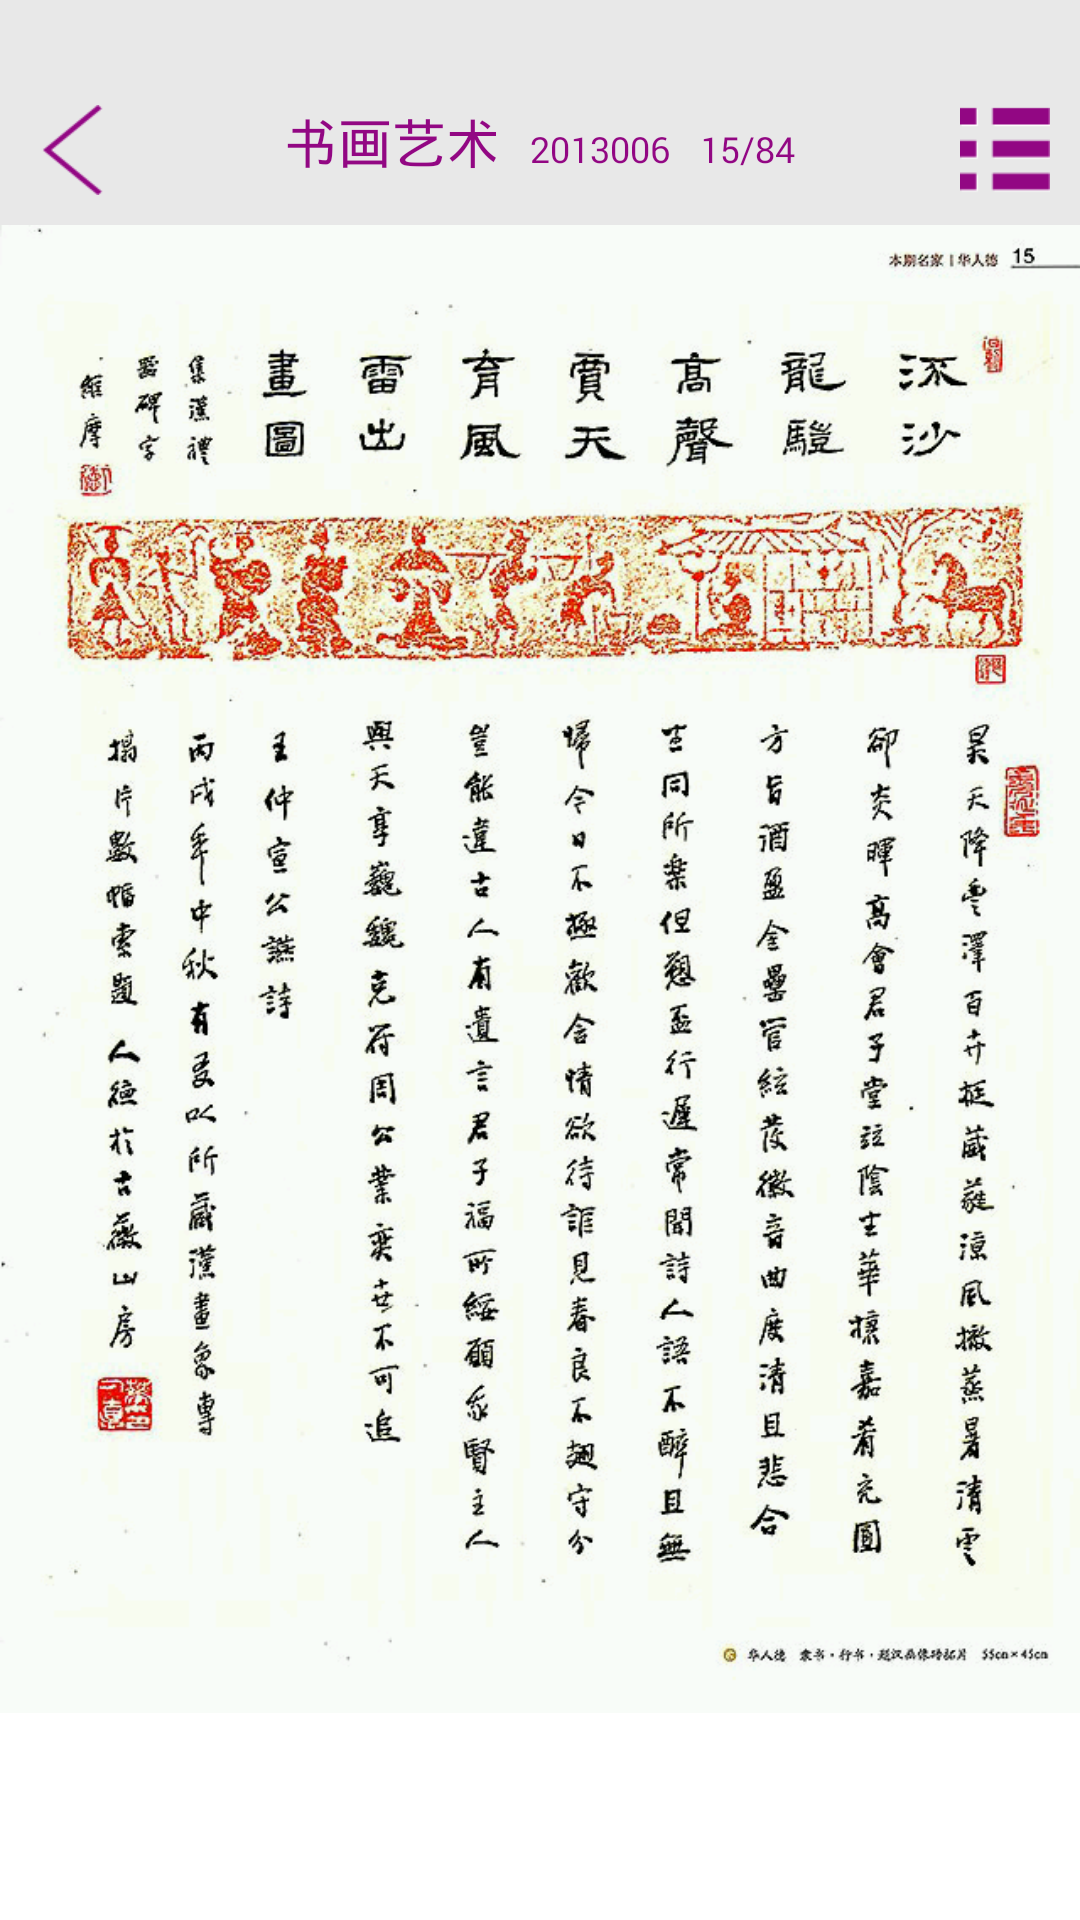 书画艺术 2013006 15/84
本期名家 | 华人德 15
流沙
龍
高聲
賈天
育風
雷出
畫圖
集漢禮
器碑字
維摩
昊天降豐澤百卉挺葳蕤涼風撤蒸暑清雲
卻炎暉高會君子堂竝陰坐華榱嘉肴充圓
方旨酒盈金罍管絃發徽音曲度清且悲合
坐同所樂但愬盃行遲常聞詩人語不醉且無
歸今日不極歡含情欲待誰見眷良不翅守分
豈能違古人有遺言君子福所綏願我賢主人
與天享巍巍克符周公業奕世不可追
王仲宣公讌詩
丙戌年中秋有友以所藏漢畫象專
搨片數幅索題 人德於古薇山房
华人德 隶书·行书·题汉画像砖拓片 55cm×45cm